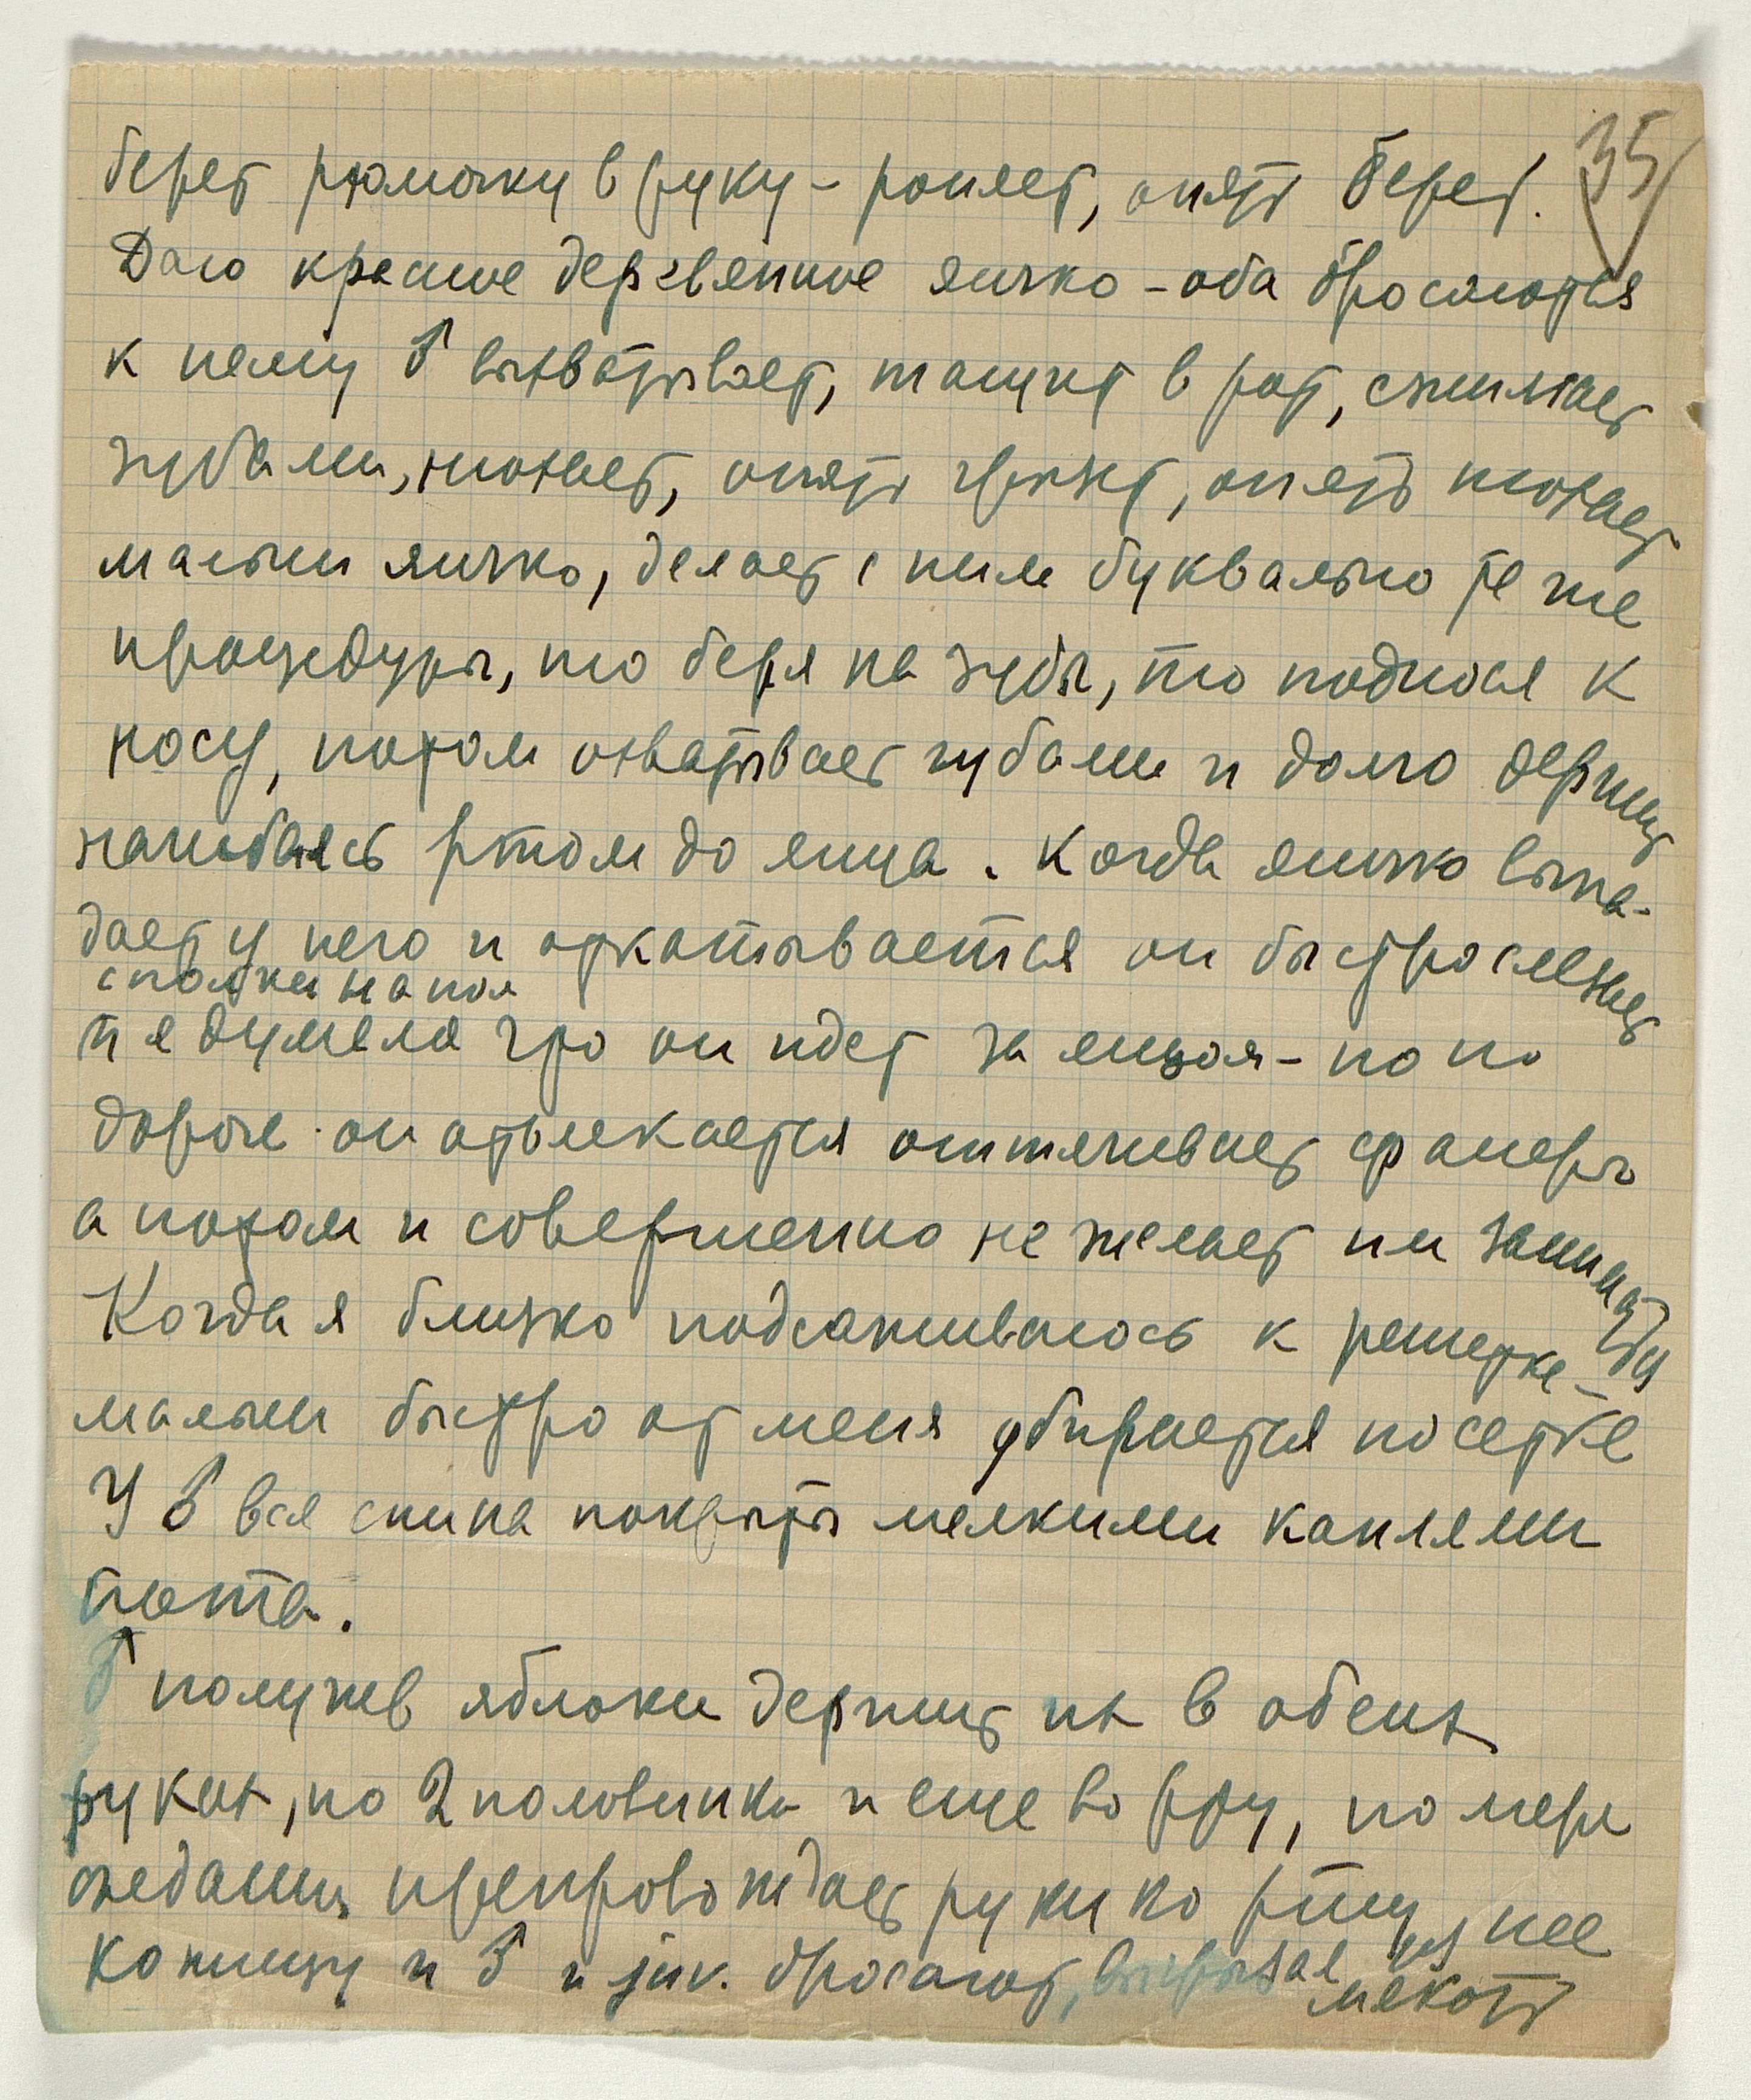 35
берет рюмочку в руку – роняет, опять берет.
Даю красное деревянное яичко – оба бросаются
к нему ♂ выхватывает, тащит в рот, сжимает
зубами, нюхает, опять грызет, опять нюхает
малыш яичко, делает с ним буквально те же
процедуры, то беря на зубы, то поднося к
носу, потом охватывает губами и долго держит
нагибаясь ртом до яйца. Когда яичко выпа-
дает у него и откатывается он быстро слезает
с полки на пол
и я думала что он идет за яйцом – но по
дороге он отвлекается оттягивает фанеры
а потом и совершенно не желает им заниматься
Когда я близко подсаживаюсь к решетке –
малыш быстро от меня убирается по сетке
У ♂ вся спина покрыта мелкими каплями
пота.
♂ получив яблоки держит их в обеих
руках, по 2 половинки и еще во рту, по мере
съедания препровождает руки ко рту,
кожицу и ♂ и juv. бросают, выгрызая из нее
мякоть